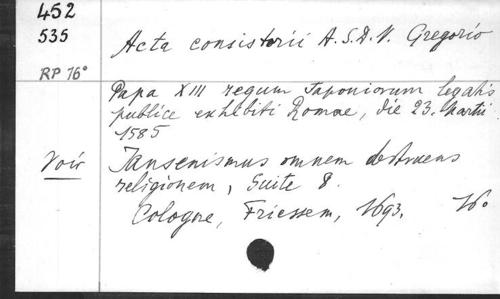 452
535
RP 16°
Acta consistorii A.S.D.N. Gregorio
Papa XIII regum Japoniorum legatis
publice exhibiti Romae, die 23. Martii
1585
Voir Jansenismus omnem destruens
religionem, Suite 8.
Cologne, Friessem, 1693. 16°